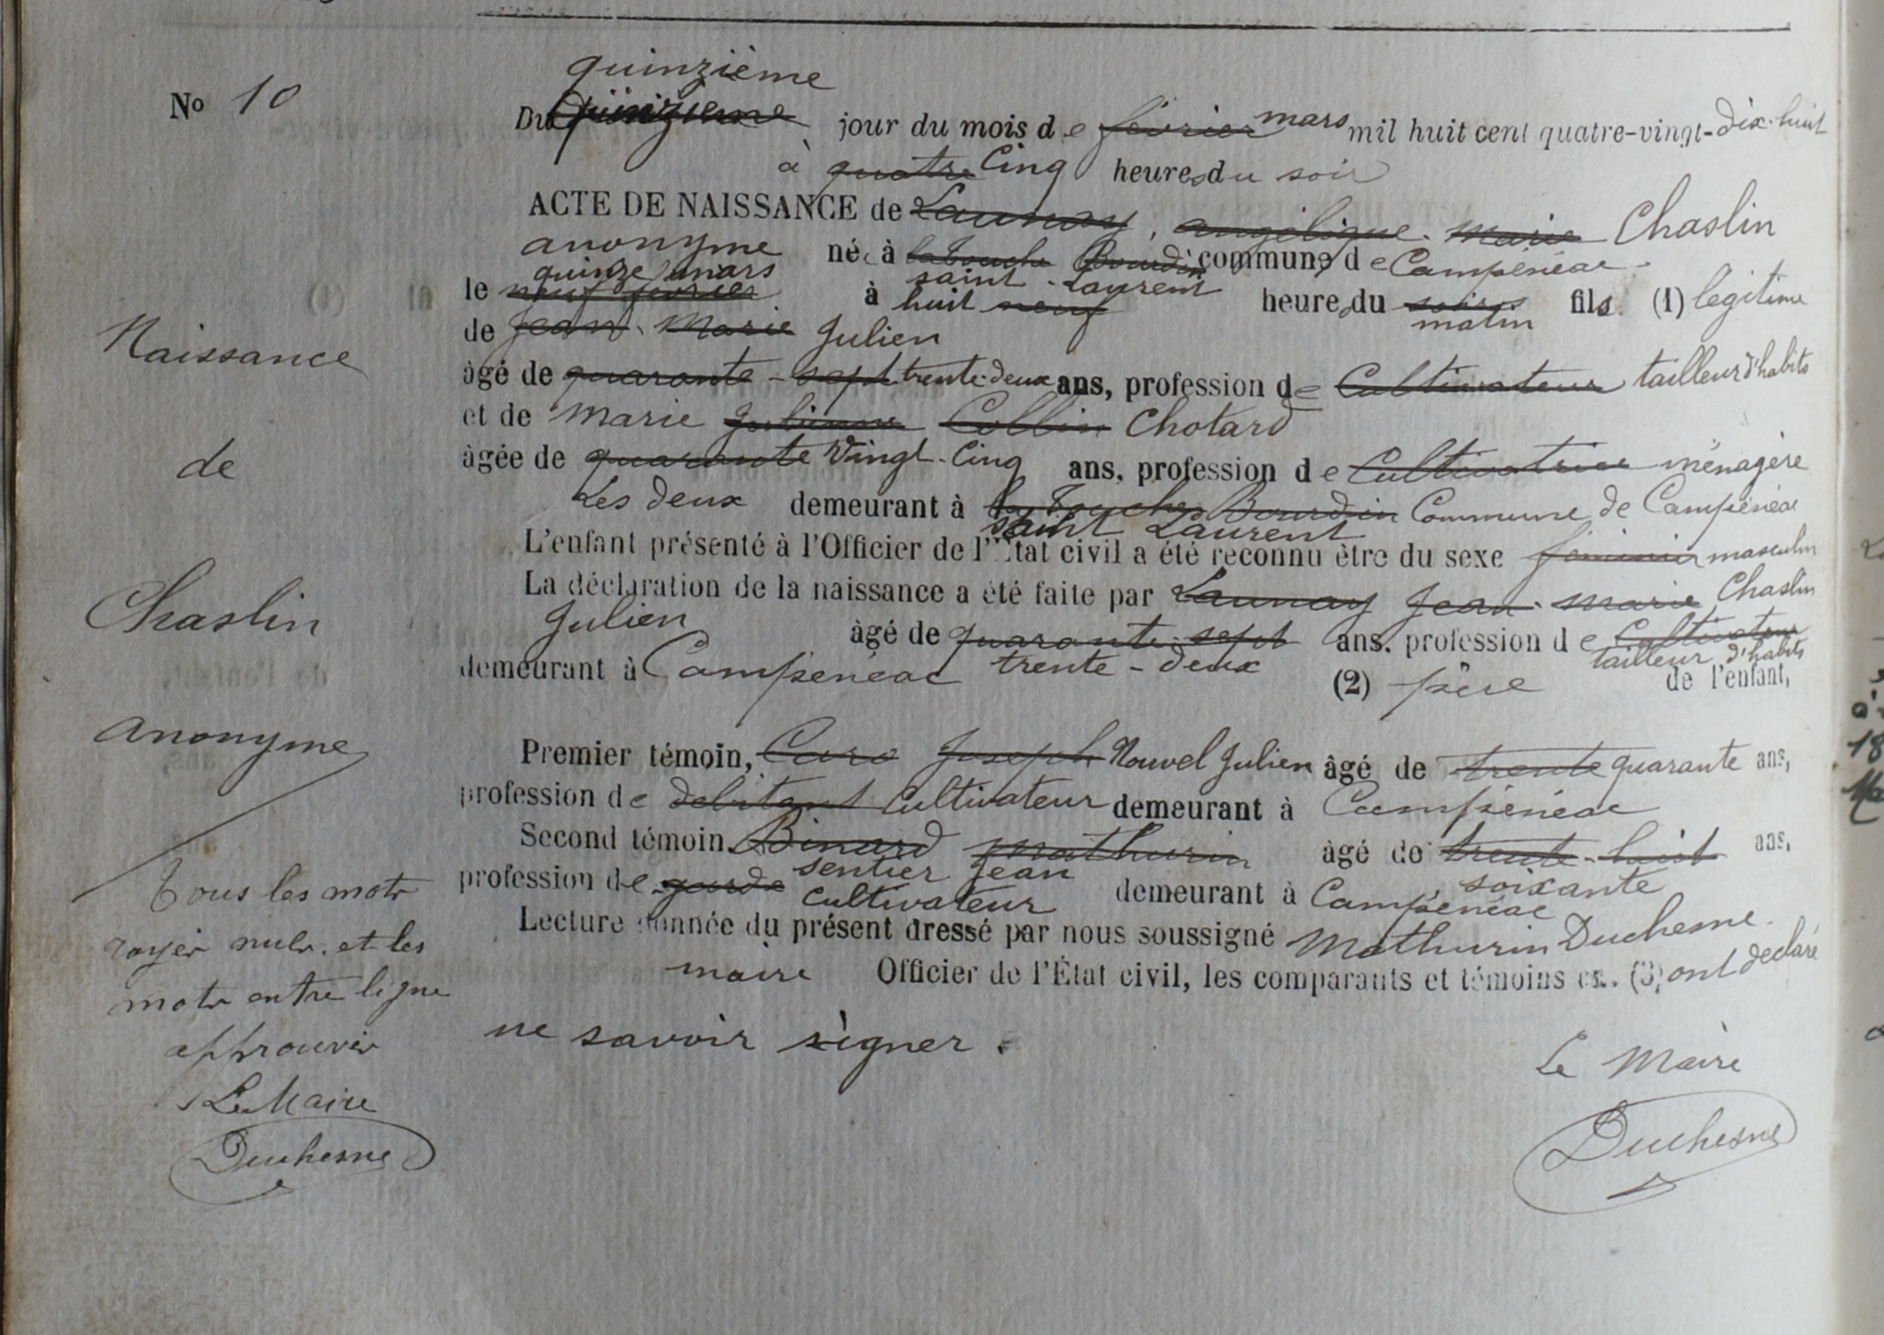 No 10
Naissance
de
Chaslin
anonyme
Tous les mots
rayés nuls. et les
mots entre ligne
approuvés
Le Maire
Duchesne
quinzième
Du quinzième jour du mois de février mars mil huit cent quatre-vingt-dix-huit
à quatre Cinq heures du soir
ACTE DE NAISSANCE de Launay, angélique marie Chaslin
anonyme né à latouche Bourdin commune de Campénéac
quinze mars saint Laurent
le neuf février à huit neuf heures du soir fils (1) légitime
matin
de Jean Marie Julien
âgé de quarante-sept trente-deux ans, profession de Cultivateur tailleur d'habits
et de Marie Julienne Collin Chotard
âgée de quarante Vingt-Cinq ans, profession de Cultivatrice ménagère
Les deux demeurant à la Touche Bourdin Commune de Campénéac
saint Laurent
L'enfant présenté à l'Officier de l'État civil a été reconnu être du sexe féminin masculin
La déclaration de la naissance a été faite par Launay Jean Marie Chaslin
Julien âgé de quarante-sept ans, profession de Cultivateur
tailleur d'habits
demeurant à Campénéac trente-deux (2) père de l'enfant,
Premier témoin, Caro Joseph Nouvel Julien âgé de trente quarante ans,
profession de debitant Cultivateur demeurant à Campénéac
Second témoin, Binard Mathurin âgé de trente-huit ans,
sentier Jean soixante
profession de garde cultivateur demeurant à Campénéac
Lecture donnée du présent dressé par nous soussigné Mathurin Duchesne
maire Officier de l'État civil, les comparants et témoins (3) ont declaré
ne savoir signer.
Le Maire
Duchesne